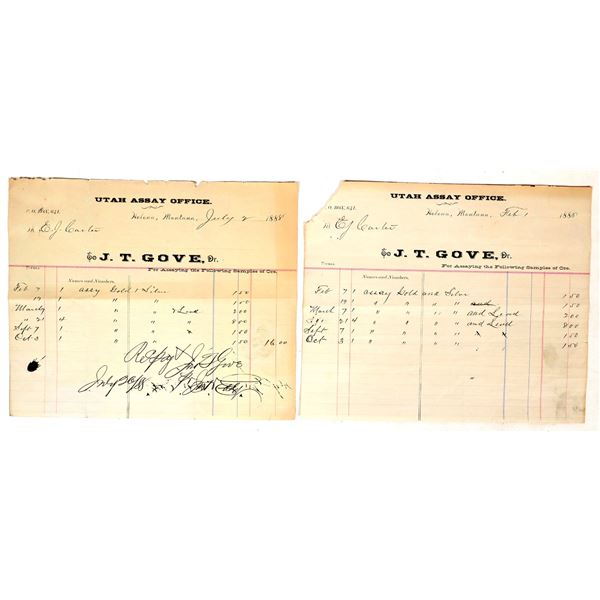 UTAH ASSAY OFFICE.
P. O. BOX, 841.
Helena, Montana, July 2 1888
M E. J. Carter
To J. T. GOVE, Dr.
For Assaying the Following Samples of Ore.
Names and Numbers.
Feb 7 1 assay Gold & Silver 1.50
19 1 " " " 1.50
March 7 1 " " " & Lead 2.00
" 21 4 " " " " 8.00
Sept 7 1 " " " 1.50
Oct 3 1 " " " 1.50
16.00
Jno T. Gove
UTAH ASSAY OFFICE.
O. BOX, 841.
Helena, Montana, Feb 1 1888
M E J Carter
To J. T. GOVE, Dr.
For Assaying the Following Samples of Ore.
Names and Numbers.
Feb 7 1 assay Gold and Silver 1.50
19 1 " " " 1.50
March 7 1 " " " and Lead 2.00
21 4 " " " and Lead 8.00
Sept 7 1 " " 1.50
Oct 3 1 " " " 1.50